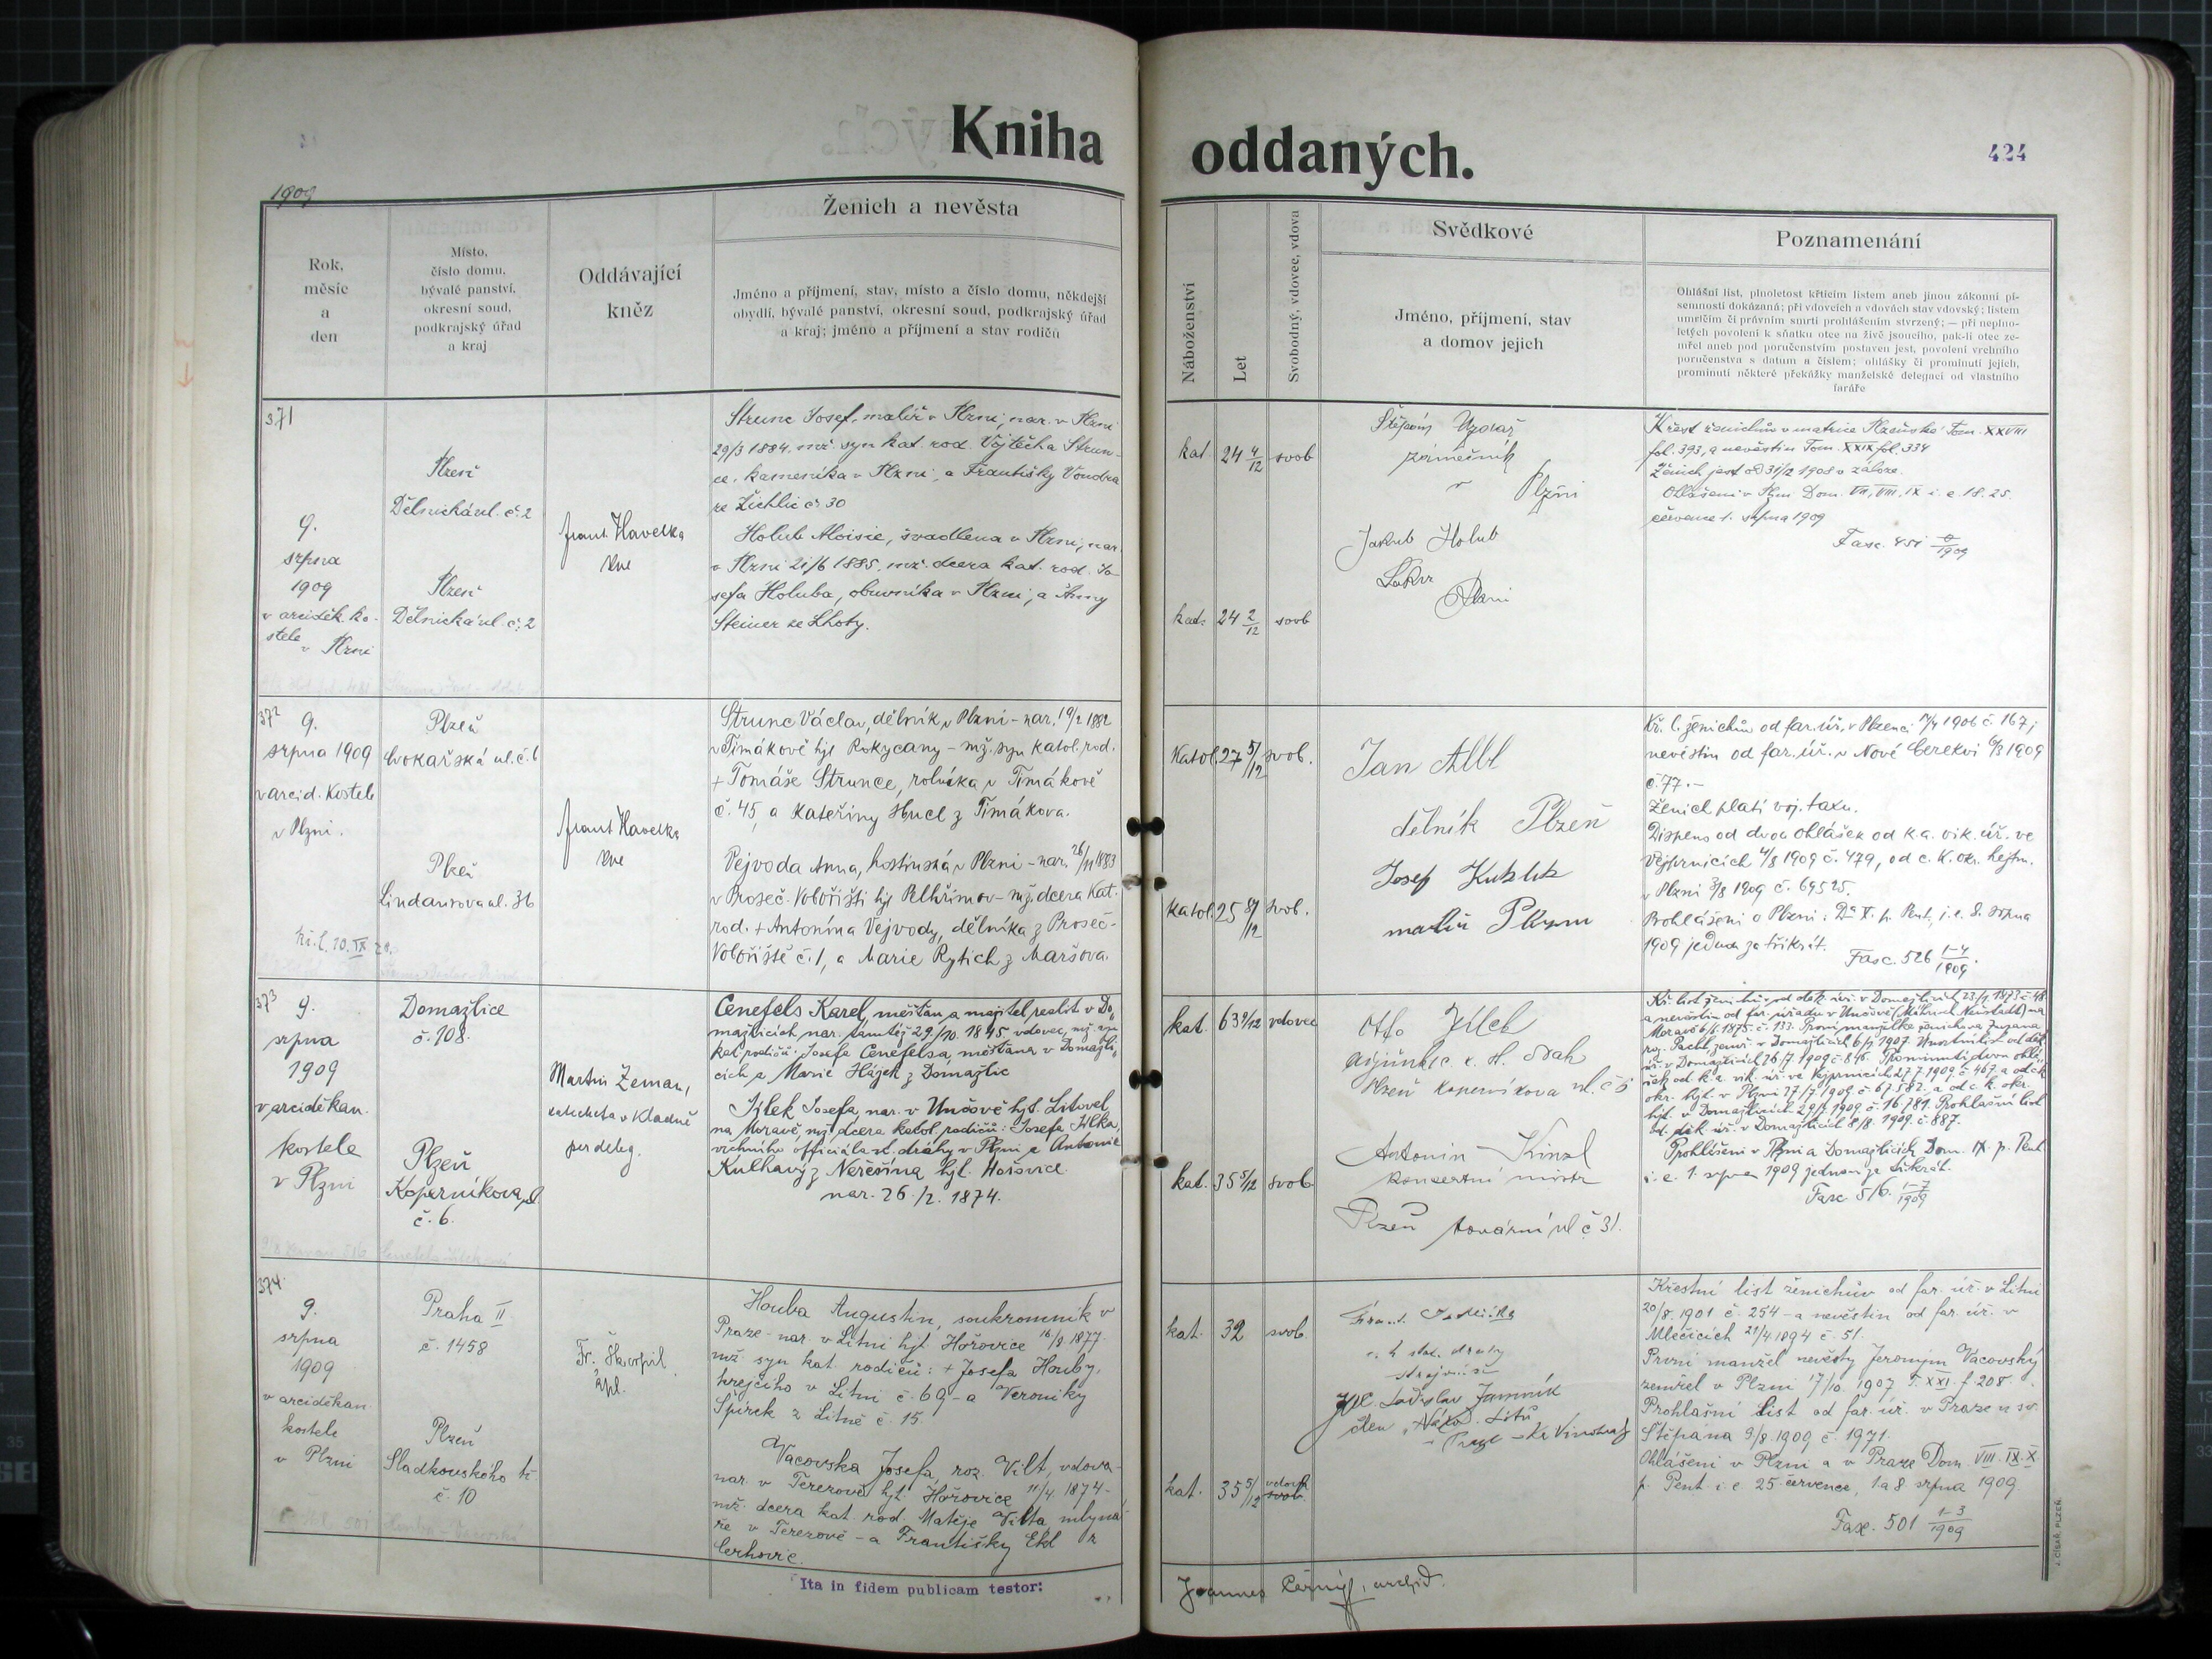 Kniha oddaných.
424
1909
Rok,
měsíc
a
den
Místo,
číslo domu,
bývalé panství,
okresní soud,
podkrajský úřad
a kraj
Oddávající
kněz
Ženich a nevěsta
Jméno a příjmení, stav, místo a číslo domu, někdejší
obydlí, bývalé panství, okresní soud, podkrajský úřad
a kraj; jméno a příjmení a stav rodičů
Náboženství
Let
Svobodný, vdovec, vdova
Svědkové
Jméno, příjmení, stav
a domov jejich
Poznamenání
Ohlášní list, plnoletost křticím listem aneb jinou zákonní pí-
semností dokázaná; při vdovcích a vdovách stav vdovský; listem
umrlčím či právním smrti prohlášením stvrzený; — při neplno-
letých povolení k sňatku otce na živě jsoucího, pak-li otec ze-
mřel aneb pod poručenstvím postaven jest, povolení vrchního
poručenstva s datum a číslem; ohlášky či prominutí jejich,
prominutí některé překážky manželské delegací od vlastního
faráře
371
9.
srpna
1909
v arciděk. ko-
stele
v Plzni
Plzeň
Dělnická ul. č. 2
Plzeň
Dělnická ul. č. 2
Frant. Havelka
Strunc Josef, malíř v Plzni, nar. v Plzni
29/3 1884, mž. syn kat. rod. Vojtěcha Strun-
ce, kameníka v Plzni, a Františky Vondra
ze Žichlic č. 30
Holub Aloisie, švadlena v Plzni, nar.
v Plzni 21/6 1885, mž. dcera kat. rod. Jo-
sefa Holuba, obuvníka v Plzni, a Anny
Steiner ze Lhoty.
kat. 24 4/12 svob
kat. 24 2/12 svob
Štěpán
v Plzni
Jakub Holub
Plzni
Křest ženichův v matrice Plzeňské Tom. XXVIII
fol. 393, a nevěstin Tom. XXIX fol. 334
Ženich jest od 31/12 1908 v záloze.
Ohlášeni v Plzni Dom. VII, VIII, IX i. e. 18. 25.
července 1. srpna 1909
372
9.
srpna 1909
v arcid. kostele
v Plzni.
Plzeň
Plzeň
Lindaurova ul. 36
Frant. Havelka
Strunc Václav, dělník v Plzni – nar. 19/2 1882
v Timákově hjt Rokycany – mž. syn katol. rod.
+ Tomáše Strunce, rolníka v Timákově
č. 45, a Kateřiny Hucl z Timákova.
Vejvoda Anna, hostinská v Plzni – nar. 26/11 1883
v Proseč-Vobořišti hjt Pelhřimov – mž. dcera kat.
rod. + Antonína Vejvody, dělníka z Proseč-
Vobořiště č. 1, a Marie Rytich z Maršova.
Katol. 27 5/12 svob.
Katol. 25 8/12 svob.
Jan Albl
dělník Plzeň
Josef
Kř. l. ženichův od far. úř. v Plzenci 17/4 1906 č. 167;
nevěstin od far. úř. v Nové Cerekvi 6/3 1909
č. 77. –
Ženich platí voj. taxu.
Dispens od dvou ohlášek od k. a. vik. úř. ve
Vejprnicích 4/8 1909 č. 479, od c. k. okr. hejtm.
v Plzni 3/8 1909 č. 69525.
Prohlášeni v Plzni: Dca X. p. Pent., i. e. 8. srpna
1909 jednou za třikrát.
Fasc. 526 1-4/1909.
373
9.
srpna
1909
v arciděkan.
kostele
v Plzni
Domažlice
č. 108.
Plzeň,
Koperníkova ul
č. 6.
Martin Zeman,
katecheta v Kladně
per deleg.
Cenefels Karel, měšťan a majitel realit v Do-
mažlicích nar. tamtéž 29./10. 1845 vdovec, mž. syn
kat. rodičů: Josefa Cenefelsa, měšťana v Domažli-
cích a Marie Hájek z Domažlic
Jílek Josefa, nar. v Unčově hjt. Litovel
na Moravě, mž. dcera katol. rodičů: Josefa Jílka,
vrchního officiala st. dráhy v Plzni a Antonie
Kulhavý z Neřežína hjt. Hořovice.
nar. 26./2. 1874.
kat. 63 9/12 vdovec
kat. 35 5/12 svob
Otto Jílek
adjunkt c. k. st. drah
Plzeň Koperníkova ul. č 6
Antonín Kinzl
koncertní mistr
Plzeň tovární ul č 31.
Kř. list ženichův od děk. úř. v Domažlicích 23/7. 1873 č. 48.
a nevěstin od far. úřadu v Unčově (Mährisch Neustadt) na
Moravě 6/8. 1875. č. 133. První manželka ženichova Zuzana
Prohlášeni v Plzni a Domažlicích Dom. IX. p. Pent.
i. e. 1. srpna 1909 jednou za třikrát.
Fasc. 516. 1-7/1909
374.
9.
srpna
1909
v arciděkan.
kostele
v Plzni
Praha II
č. 1458
Plzeň
Sladkovského tř.
č. 10
Fr. Škorpil
kpl.
Houba Augustin, soukromník v
Praze – nar. v Litni hjt. Hořovice 16/8 1877.
mž. syn kat. rodičů: + Josefa Houby,
krejčího v Litni č. 69 – a Veroniky
Špírek z Litně č. 15.
Vacovska Josefa, roz. Vilt, vdova –
nar. v Terezově hjt. Hořovice 11/4. 1874 –
mž. dcera kat. rod. Matěje Vilta mlyná-
ře v Terezově – a Františky Ekl z
Cerhovic.
kat. 32 svob
kat. 35 5/12 vdova
Frant.
c. k. stát. dráhy
JUC. Ladislav
člen
Křestní list ženichův od far. úř. v Litni
20/8. 1901 č. 254 – a nevěstin od far. úř. v
Mlečicích 21/4. 1894 č. 51.
První manžel nevěsty Jeroným Vacovský
zemřel v Plzni 17/10. 1907 T. XXI. f. 208.
Prohlašní list od far. úř. v Praze u sv.
Štěpána 9/8. 1909 č. 1971.
Ohlášeni v Plzni a v Praze Dom. VIII. IX. X.
p. Pent. i. e 25 července, 1 a 8 srpna 1909.
Fasc. 501 1-3/1909
Ita in fidem publicam testor:
Joannes Černý, archid.
J. CÍSAŘ, PLZEŇ.